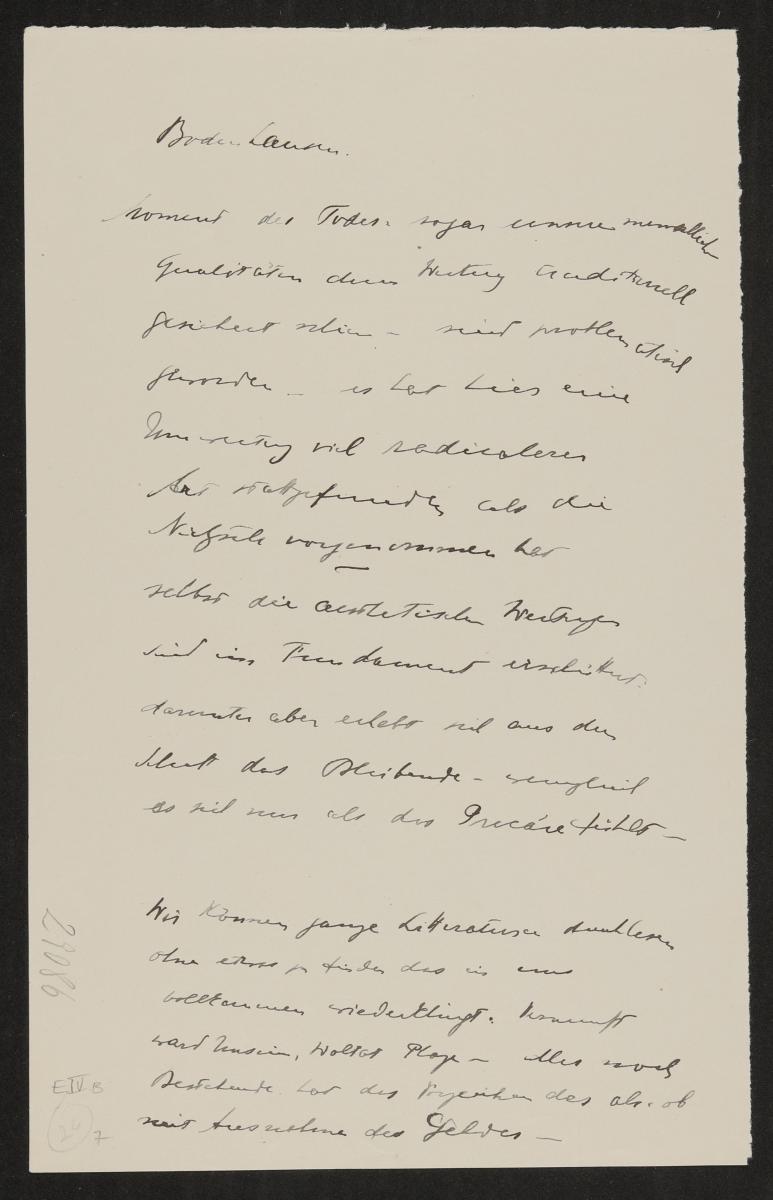 Bodenhausen.
Moment des Todes: sogar unsere menschlichen
Qualitäten deren Wertung traditionell
gesichert schien – sind problematisch
geworden – es hat hier eine
Umwertung viel radicalerer
Art stattgefunden als die
Nietzsche vorgenommen hat
selbst die aesthetischen Wertungen
sind im Fundament erschüttert:
darunter aber erhebt sich aus dem
Schutt das Bleibende – wenngleich
es sich nur als das Precäre fühlt –
Wir können ganze Litteraturen durchlesen
ohne etwas zu finden das in uns
vollkommen wiederklingt: Vernunft
ward Unsinn, Woltat Plage – Alles noch
Bestehende hat das Vorzeichen des als-ob
mit Ausnahme des Geldes –
29086
E IV B
26
7